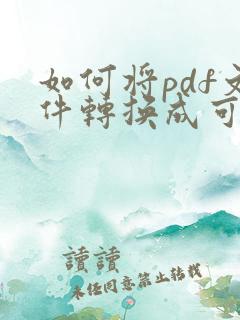 如何将pdf文
件轉换成可
讀讀
未任同意禁止转载